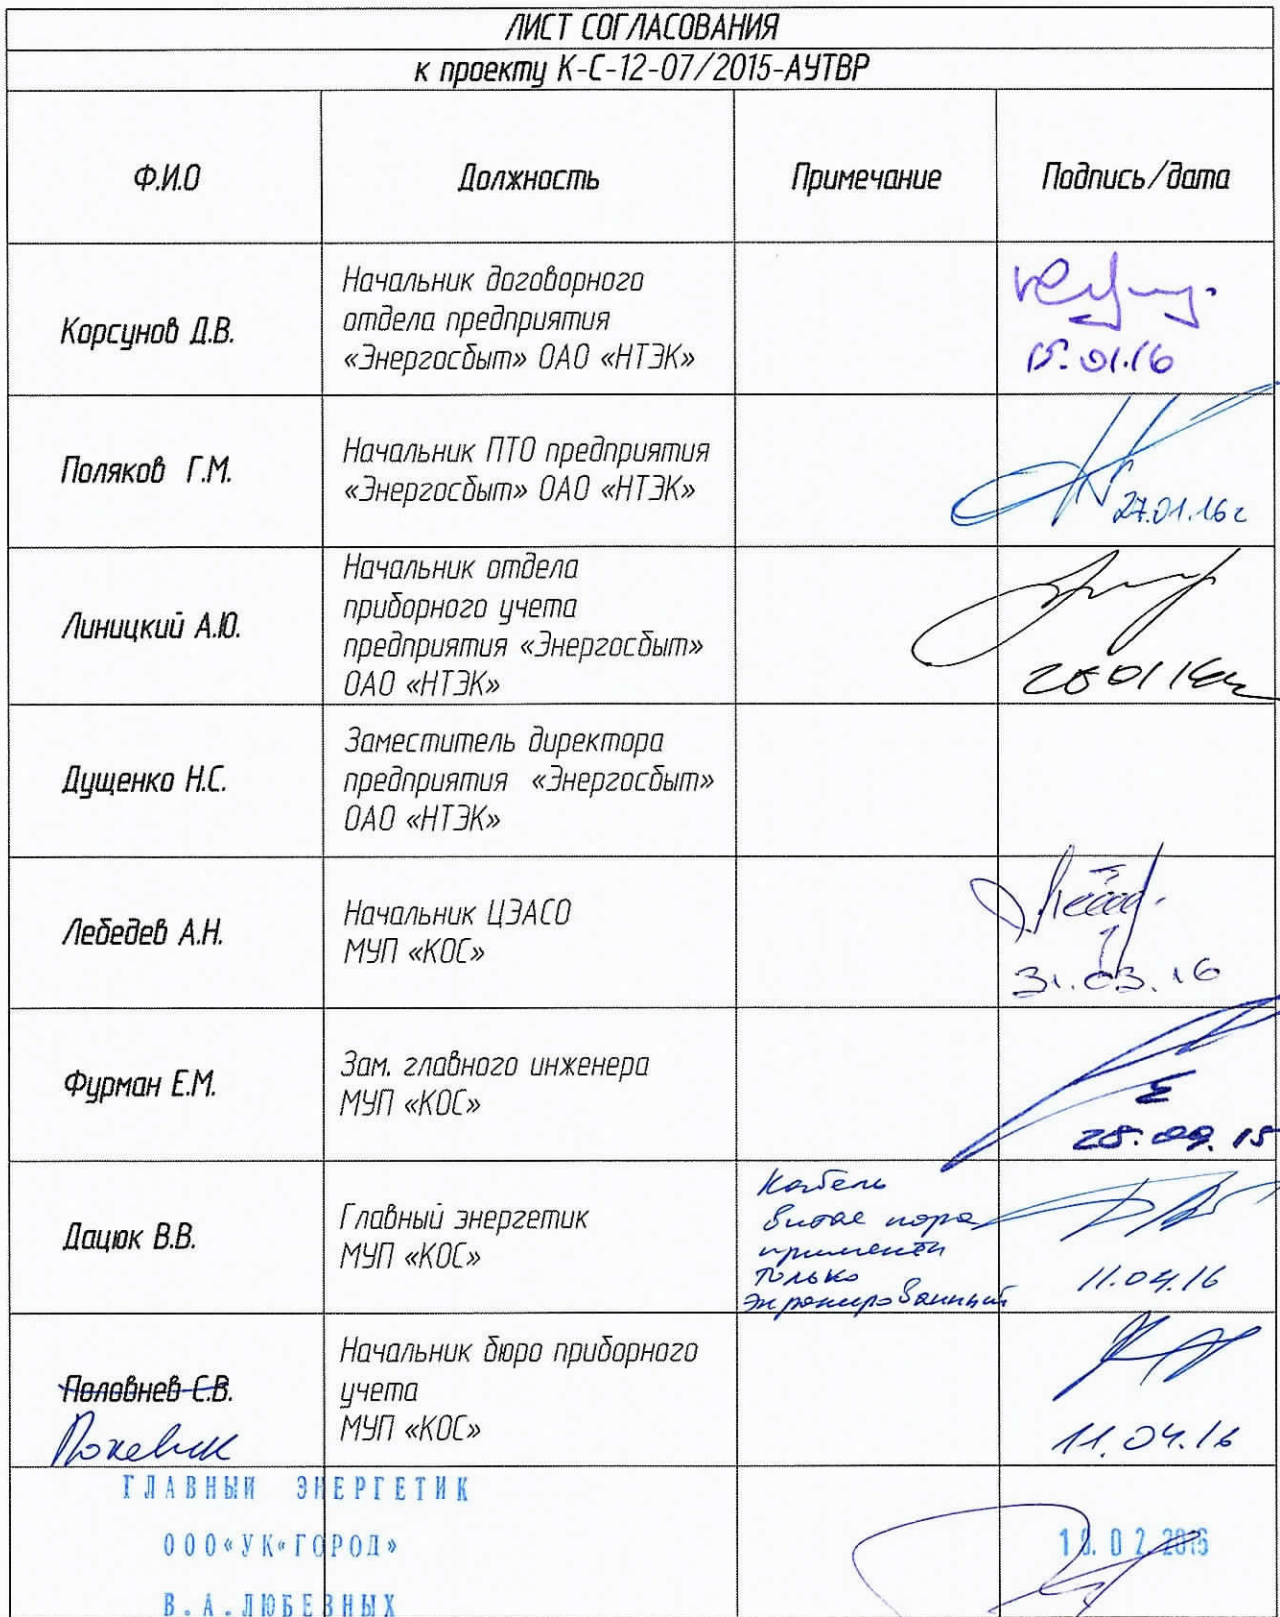 ЛИСТ СОГЛАСОВАНИЯ
к проекту К-С-12-07/2015-АУТВР
Ф.И.О
Должность
Примечание
Подпись/дата
Корсунов Д.В.
Начальник договорного
отдела предприятия
«Энергосбыт» ОАО «НТЭК»
15.01.16
Поляков Г.М.
Начальник ПТО предприятия
«Энергосбыт» ОАО «НТЭК»
27.01.16г
Линицкий А.Ю.
Начальник отдела
приборного учета
предприятия «Энергосбыт»
ОАО «НТЭК»
Дущенко Н.С.
Заместитель директора
предприятия «Энергосбыт»
ОАО «НТЭК»
Лебедев А.Н.
Начальник ЦЭАСО
МУП «КОС»
31.03.16
Фурман Е.М.
Зам. главного инженера
МУП «КОС»
28.09.15
Дацюк В.В.
Главный энергетик
МУП «КОС»
Кабель
витая пара
применять
только
экранированный
11.04.16
Половнев С.В.
Начальник бюро приборного
учета
МУП «КОС»
11.04.16
ГЛАВНЫЙ ЭНЕРГЕТИК
ООО«УК«ГОРОД»
В.А.ЛЮБЕЗНЫХ